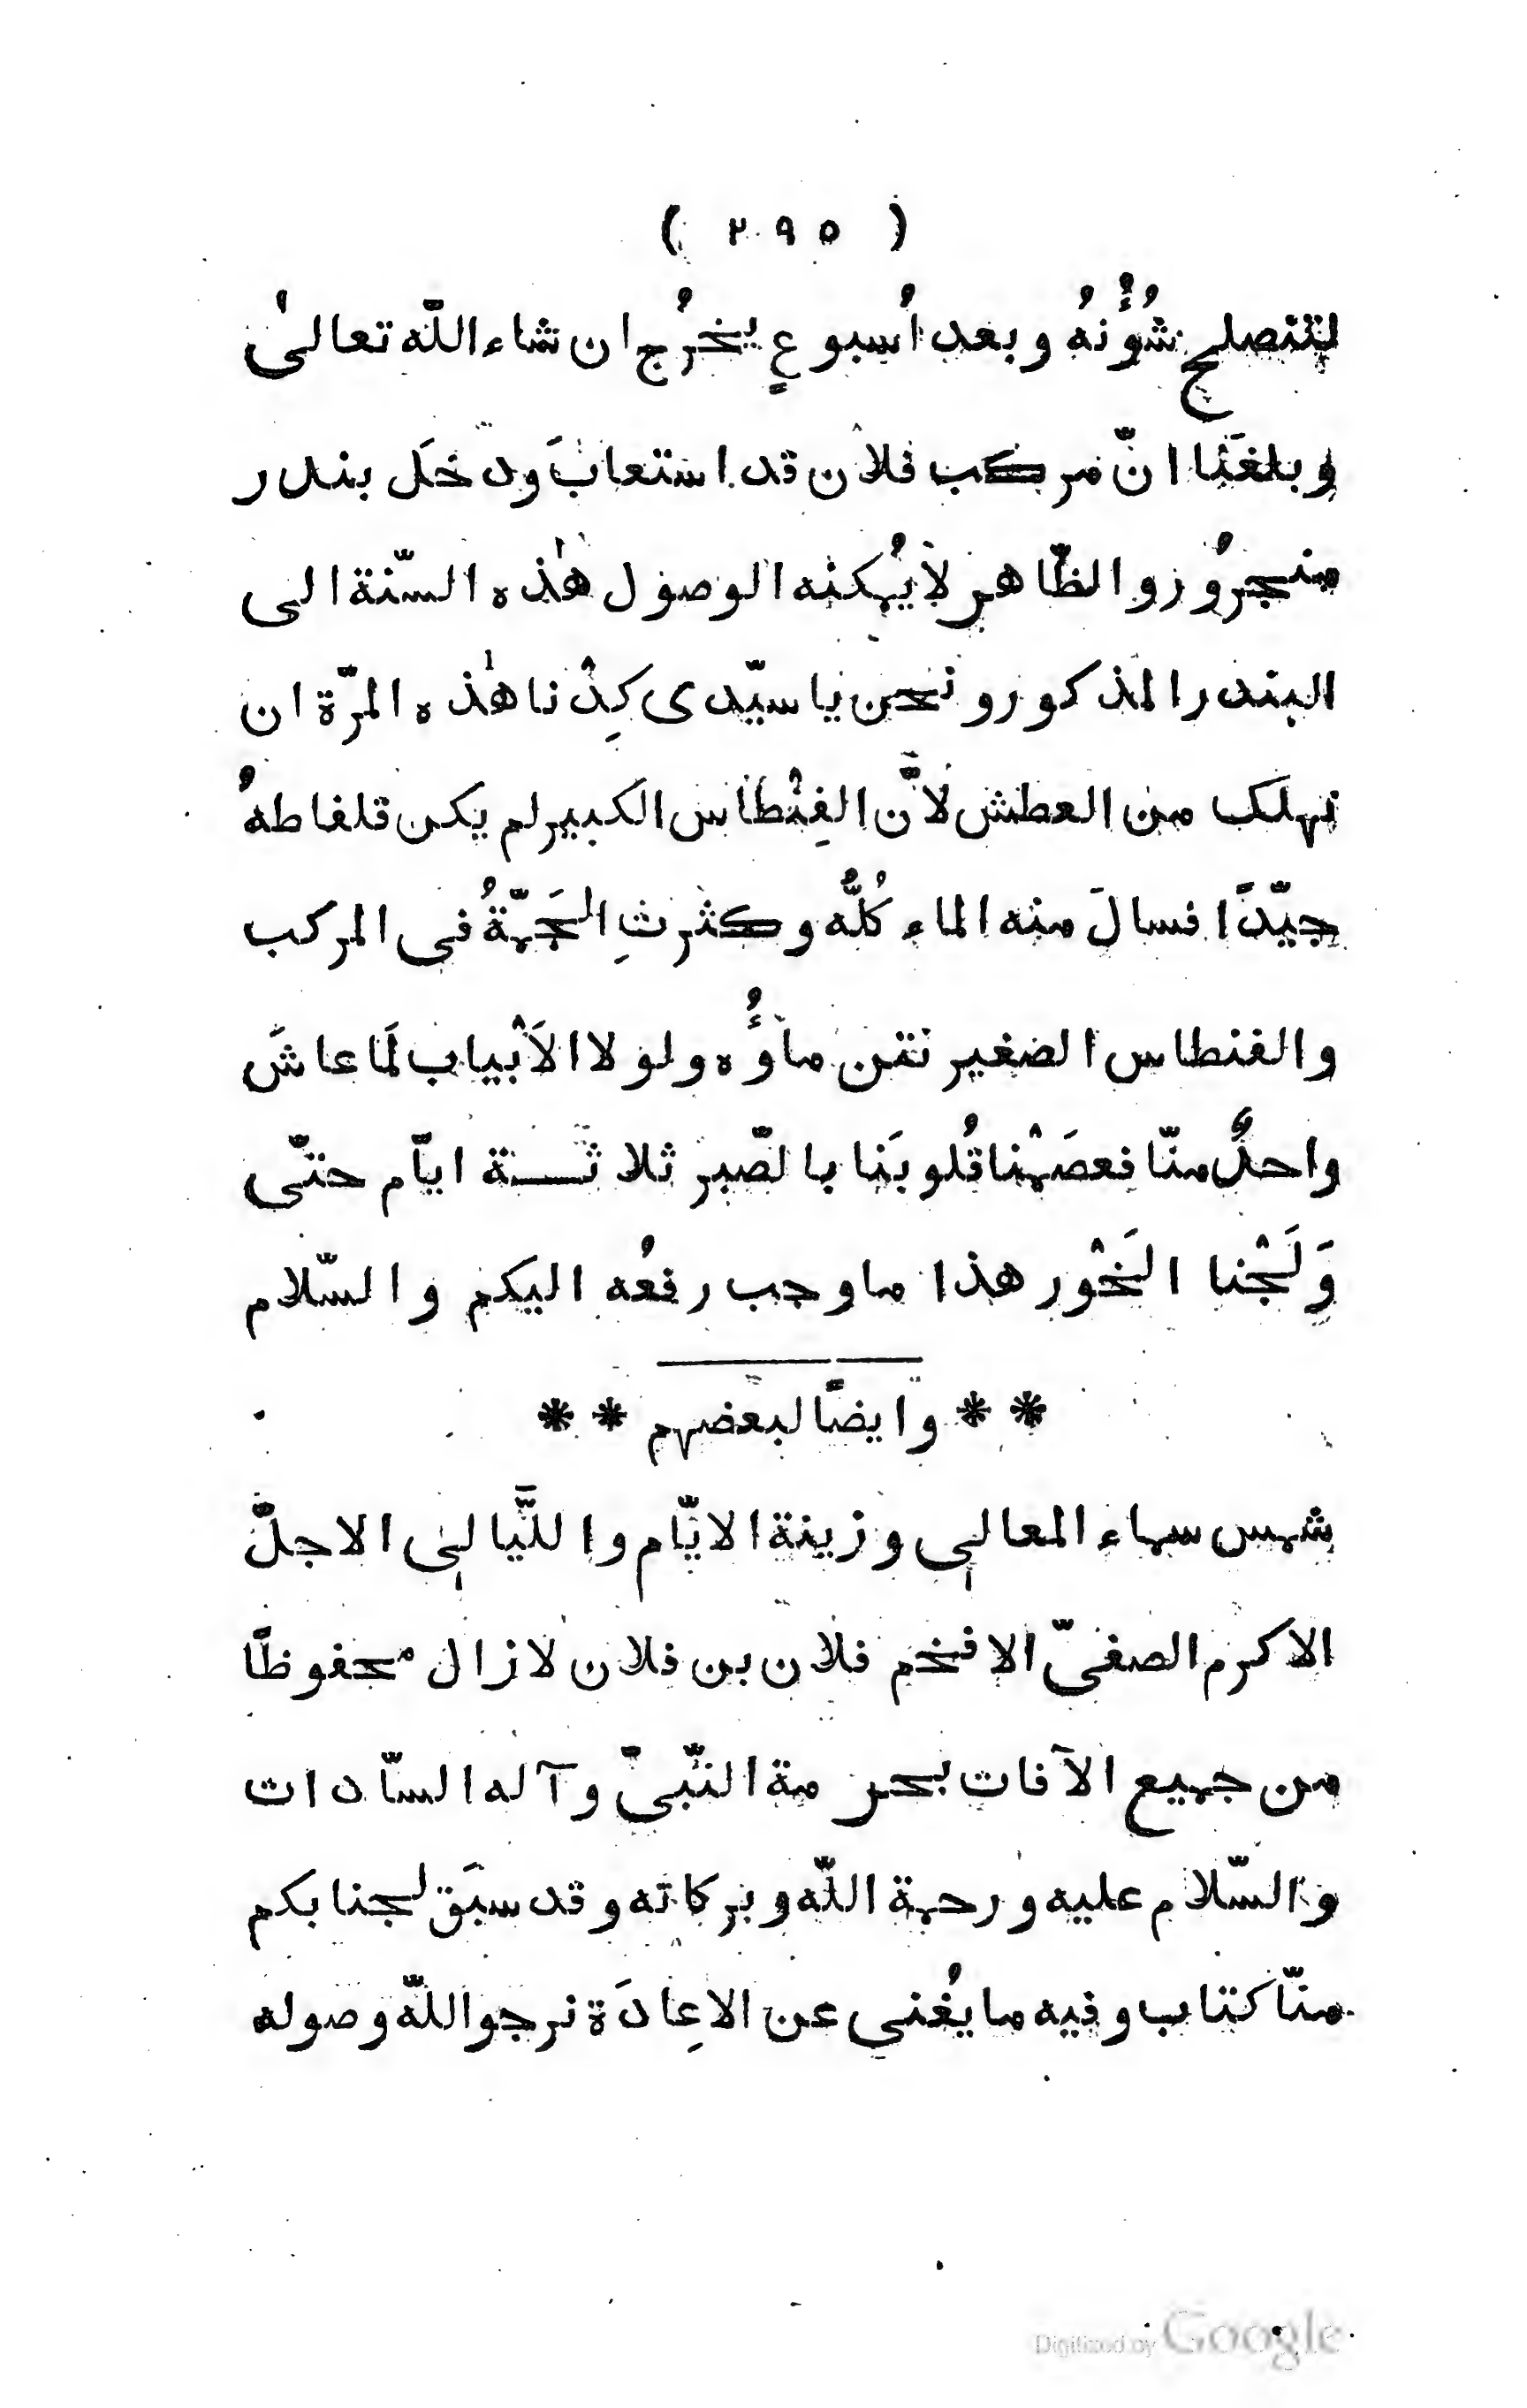 ( ٢٩٥ )
لتنصلح شُؤُنهُ وبعد اُسبوعٍ يخرُج ان شاء اللّه تعالىٰ
وبلغَنا انّ مركب فلان قد استعابَ ودخَل بندر
منجرُور والظّاهر لايُمكنه الوصول هٰذه السّنة الى
البندر المذكور ونحن ياسيّدى كِدْنا هٰذه المرّة ان
نهلك من العطش لاَنّ الفِنْطاس الكبير لم يكن قلفاطهُ
جيّدًا فسالَ منه الماء كُلُّه وكثرتِ الجَمّةُ فى المركب
والفنطاس الصغير نتن ماؤُه ولولا الاَبْياب لَما عاشَ
واحدٌ منّا فعصَمْنا قُلوبَنا بالصّبر ثلاثة ايّام حتّى
وَلَجْنا الخَوْر هذا ماوجب رفعُه اليكم والسّلام
* * وايضًا لبعضهم * *
شمس سماء المعالى وزينة الايّام واللَّيالى الاجلّ
الاكرم الصفىّ الافخم فلان بن فلان لازال محفوظًا
من جميع الآفات بحرمة النّبىّ وآله السّادات
والسّلام عليه ورحمة اللّه وبركاته وقد سبَق لجنابكم
منّا كتاب وفيه مايُغنى عن الاعِادَة نرجواللّه وصوله
Digitized by Google